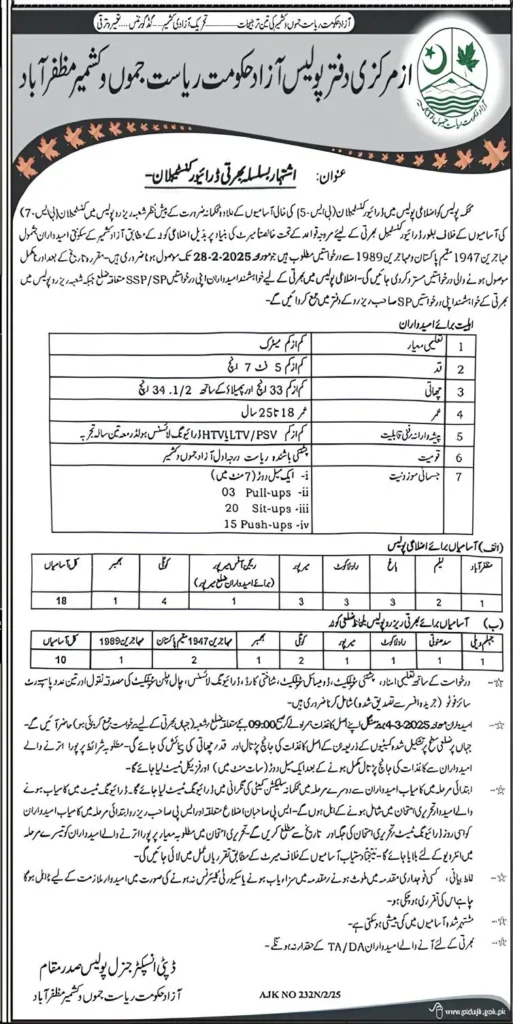 آزاد حکومت ریاست جموں و کشمیر کی تین ترجیحات
تحریک آزادی کشمیر، گڈ گورننس، تعمیر و ترقی
آزاد حکومت ریاست جموں و کشمیر
از مرکزی دفتر پولیس آزاد حکومت ریاست جموں و کشمیر مظفرآباد
عنوان: اشتہار بسلسلہ بھرتی ڈرائیور کنسٹیبلان-
محکمہ پولیس کو اضلاعی پولیس میں ڈرائیور کنسٹیبلان (بی ایس۔5) کی خالی آسامیوں کے علاوہ محکمانہ ضرورت کے پیش نظر شعبہ ریزرو پولیس میں کنسٹیبلان (بی ایس۔7)
کی آسامیوں کے خلاف بطور ڈرائیور کنسٹیبل بھرتی کے لیے مروجہ قواعد کے تحت خالصتاً میرٹ کی بنیاد پر بذیل اضلاعی کوٹہ کے مطابق آزاد کشمیر کے سکونتی امیدواران بشمول
مہاجرین 1947 مقیم پاکستان و مہاجرین 1989 سے درخواستیں مطلوب ہیں جو مورخہ 28-2-2025 تک موصول ہونا ضروری ہیں۔ مقررہ تاریخ کے بعد اور نامکمل
موصول ہونے والی درخواستیں مسترد کر دی جائیں گی۔ اضلاعی پولیس میں بھرتی کے لیے خواہشمند امیدواران اپنی درخواستیں SSP/SP متعلقہ ضلع جبکہ شعبہ ریزرو پولیس میں
بھرتی کے خواہشمند اپنی درخواستیں SP صاحب ریزرو کے دفتر میں جمع کروائیں گے۔
اہلیت برائے امیدواران
1 تعلیمی معیار کم از کم میٹرک
2 قد کم از کم 5 فٹ 7 انچ
3 چھاتی کم از کم 33 انچ اور پھیلاؤ کے ساتھ 34.1/2 انچ
4 عمر عمر 18 تا 25 سال
5 پیشہ وارانہ/فنی قابلیت کم از کم LTV/PSV یا HTV ڈرائیونگ لائسنس ہولڈر معہ تین سالہ تجربہ
6 قومیت پشتنی باشندہ ریاست درجہ اول آزاد جموں و کشمیر
7 جسمانی موزونیت i- ایک میل دوڑ (7 منٹ میں)
ii- 03 Pull-ups
iii- 20 Sit-ups
iv- 15 Push-ups
(الف) آسامیاں برائے اضلاعی پولیس
مظفرآباد نیلم باغ راولاکوٹ میرپور ریجن آفس میرپور (برائے امیدواران ضلع میرپور) کوٹلی بھمبر کل آسامیاں
1 2 3 3 3 1 4 1 18
(ب) آسامیاں برائے بھرتی ریزرو پولیس بلحاظ ضلعی کوٹہ
جہلم ویلی سدھنوتی راولاکوٹ میرپور کوٹلی بھمبر مہاجرین 1947 مقیم پاکستان مہاجرین 1989 کل آسامیاں
1 1 1 1 2 1 2 1 10
☆- درخواست کے ساتھ تعلیمی اسناد، پشتنی سرٹیفکیٹ، ڈومیسائل سرٹیفکیٹ، شناختی کارڈ، ڈرائیونگ لائسنس، چال چلن سرٹیفکیٹ کی مصدقہ نقول اور تین عدد پاسپورٹ
سائز فوٹو (جریدہ آفیسر سے تصدیق شدہ) شامل کرنا ضروری ہیں۔
☆- امیدواران مورخہ 4-3-2025 بروز منگل اپنے اصل کاغذات ہمراہ لے کر صبح 09:00 بجے متعلقہ ضلع/شعبہ (جہاں بھرتی کے لیے درخواست جمع کروائی ہو) حاضر آئیں گے۔
جہاں پر ضلعی سطح پر تشکیل شدہ کمیٹیوں کے ذریعہ ان کے اصل کاغذات کی جانچ پڑتال اور قد و چھاتی کی پیمائش کی جائے گی۔ مطلوبہ شرائط پر پورا اترنے والے
امیدواران سے کاغذات کی جانچ پڑتال مکمل ہونے کے بعد ایک میل دوڑ (سات منٹ میں) اور فزیکل ٹیسٹ لیا جائے گا۔
☆- ابتدائی مرحلہ میں کامیاب امیدواران سے دوسرے مرحلہ میں محکمانہ سلیکشن کمیٹی کی نگرانی میں ڈرائیونگ ٹیسٹ لیا جائے گا۔ ڈرائیونگ ٹیسٹ میں کامیاب ہونے
والے امیدوار تحریری امتحان میں شامل ہونے کے اہل ہوں گے۔ ایس پی صاحبان اضلاع متعلقہ اور ایس پی صاحب ریزرو ابتدائی مرحلہ میں کامیاب امیدواران
کو اسی روز ڈرائیونگ ٹیسٹ/تحریری امتحان کی جگہ اور تاریخ سے مطلع کریں گے۔ تحریری امتحان میں مطلوبہ معیار پر پورا اترنے والے امیدواران کو تیسرے مرحلہ
میں انٹرویو کے لئے بلایا جائے گا۔ نتیجتاً دستیاب آسامیوں کے خلاف میرٹ کے مطابق تقرریاں عمل میں لائی جائیں گی۔
☆- غلط بیانی، کسی فوجداری مقدمہ میں ملوث ہونے/مقدمہ میں سزا یاب ہونے یا سیکورٹی کلیئرنس نہ ہونے کی صورت میں امیدوار ملازمت کے لیے نااہل ہوگا
چاہے اس کی تقرری ہو چکی ہو۔
☆- مشتہر شدہ آسامیوں میں کمی بیشی ہو سکتی ہے۔
☆- بھرتی کے لئے آنے والے امیدواران TA/DA کے حقدار نہ ہونگے۔
ڈپٹی انسپکٹر جنرل پولیس صدر مقام
آزاد حکومت ریاست جموں و کشمیر مظفرآباد
AJK NO 232N/2/25
www.pidajk.gok.pk